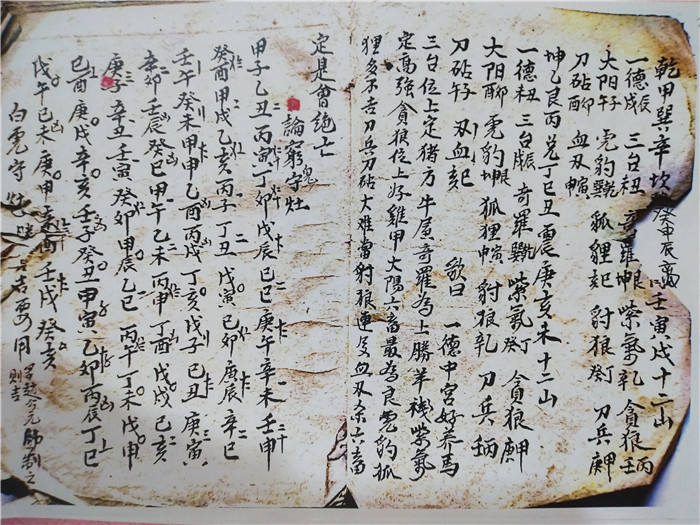 乾甲巽辛坎癸申辰离壬寅戌十二山
一德戌辰 三台丑 奇羅坤艮 紫氣乾 貪狼丙壬
大阳子午 虎豹巽乾 狐貍巳 豺狼丁癸 刀兵庚甲
刀砧卯酉 血刃寅申
坤乙艮丙兑丁巳丑震庚亥未十二山
一德丑 三台辰 奇羅巽乾 紫氣癸 貪狼庚甲
大阳卯酉 虎豹坤艮 狐狸寅申 豺狼乾 刀兵丙壬
刀砧子午 刃血亥巳
歌曰 一德中宮好养馬
三台位上定猪方牛屋奇羅為上勝羊棧紫氣
定高強貪狼位上好雞甲大陽六畜最為良虎豹狐
狸多不吉刀兵刀砧大难當豺狼連及血刃六畜
定是曾絶亡
論窮守灶
甲子乙丑丙寅丁卯戊辰己巳庚午辛未壬申
癸酉甲戌乙亥丙子丁丑戊寅己卯庚辰辛巳
壬午癸未甲申乙酉丙戌丁亥戊子己丑庚寅
辛卯壬辰癸巳甲午乙未丙申丁酉戊戌己亥
庚子辛丑壬寅癸卯甲辰乙巳丙午丁未戊申
己酉庚戌辛亥壬子癸丑甲寅乙卯丙辰丁巳
戊午己未庚申辛酉壬戌癸亥
白虎守灶
吉要用
則吉